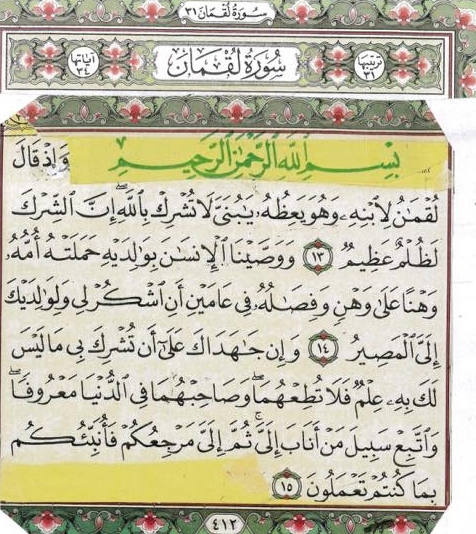 سورة لقمان ٣١
ترتيبها ٣١ سُورَةُ لُقْمَان آياتها ٣٤
بِسْمِ ٱللَّهِ ٱلرَّحْمَٰنِ ٱلرَّحِيمِ وَإِذْ قَالَ
لُقْمَٰنُ لِٱبْنِهِۦ وَهُوَ يَعِظُهُۥ يَٰبُنَىَّ لَا تُشْرِكْ بِٱللَّهِ ۖ إِنَّ ٱلشِّرْكَ
لَظُلْمٌ عَظِيمٌ ١٣ وَوَصَّيْنَا ٱلْإِنسَٰنَ بِوَٰلِدَيْهِ حَمَلَتْهُ أُمُّهُۥ
وَهْنًا عَلَىٰ وَهْنٍ وَفِصَٰلُهُۥ فِى عَامَيْنِ أَنِ ٱشْكُرْ لِى وَلِوَٰلِدَيْكَ
إِلَىَّ ٱلْمَصِيرُ ١٤ وَإِن جَٰهَدَاكَ عَلَىٰٓ أَن تُشْرِكَ بِى مَا لَيْسَ
لَكَ بِهِۦ عِلْمٌ فَلَا تُطِعْهُمَا ۖ وَصَاحِبْهُمَا فِى ٱلدُّنْيَا مَعْرُوفًا ۖ
وَٱتَّبِعْ سَبِيلَ مَنْ أَنَابَ إِلَىَّ ۚ ثُمَّ إِلَىَّ مَرْجِعُكُمْ فَأُنَبِّئُكُم
بِمَا كُنتُمْ تَعْمَلُونَ ١٥
٤١٢